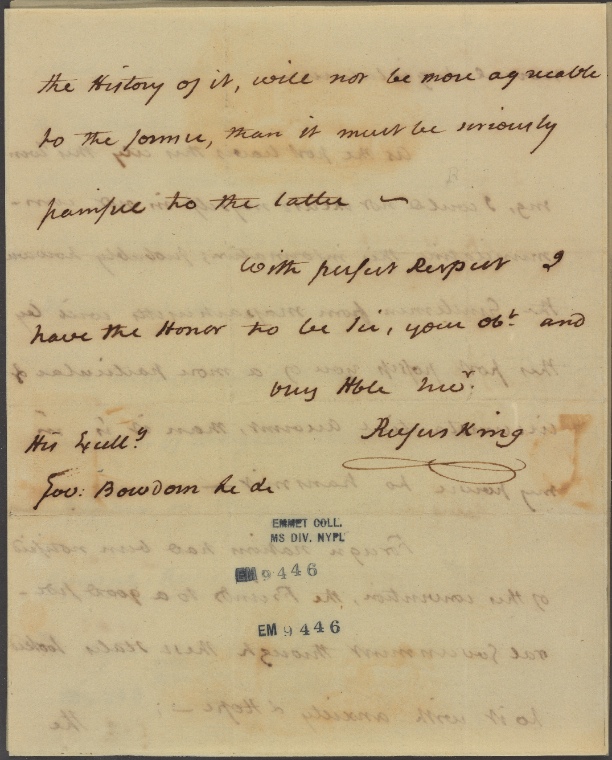 the History of it, will not be more agreeable
to the former, than it must be seriously
painful to the latter —
With perfect Respect I
have the Honor to be Sir, your obt. and
very Hble Servt.
Rufus King
His Excelly
Gov: Bowdoin &c &c
EMMET COLL.
MS DIV. NYPL
EM 9446
EM 9446